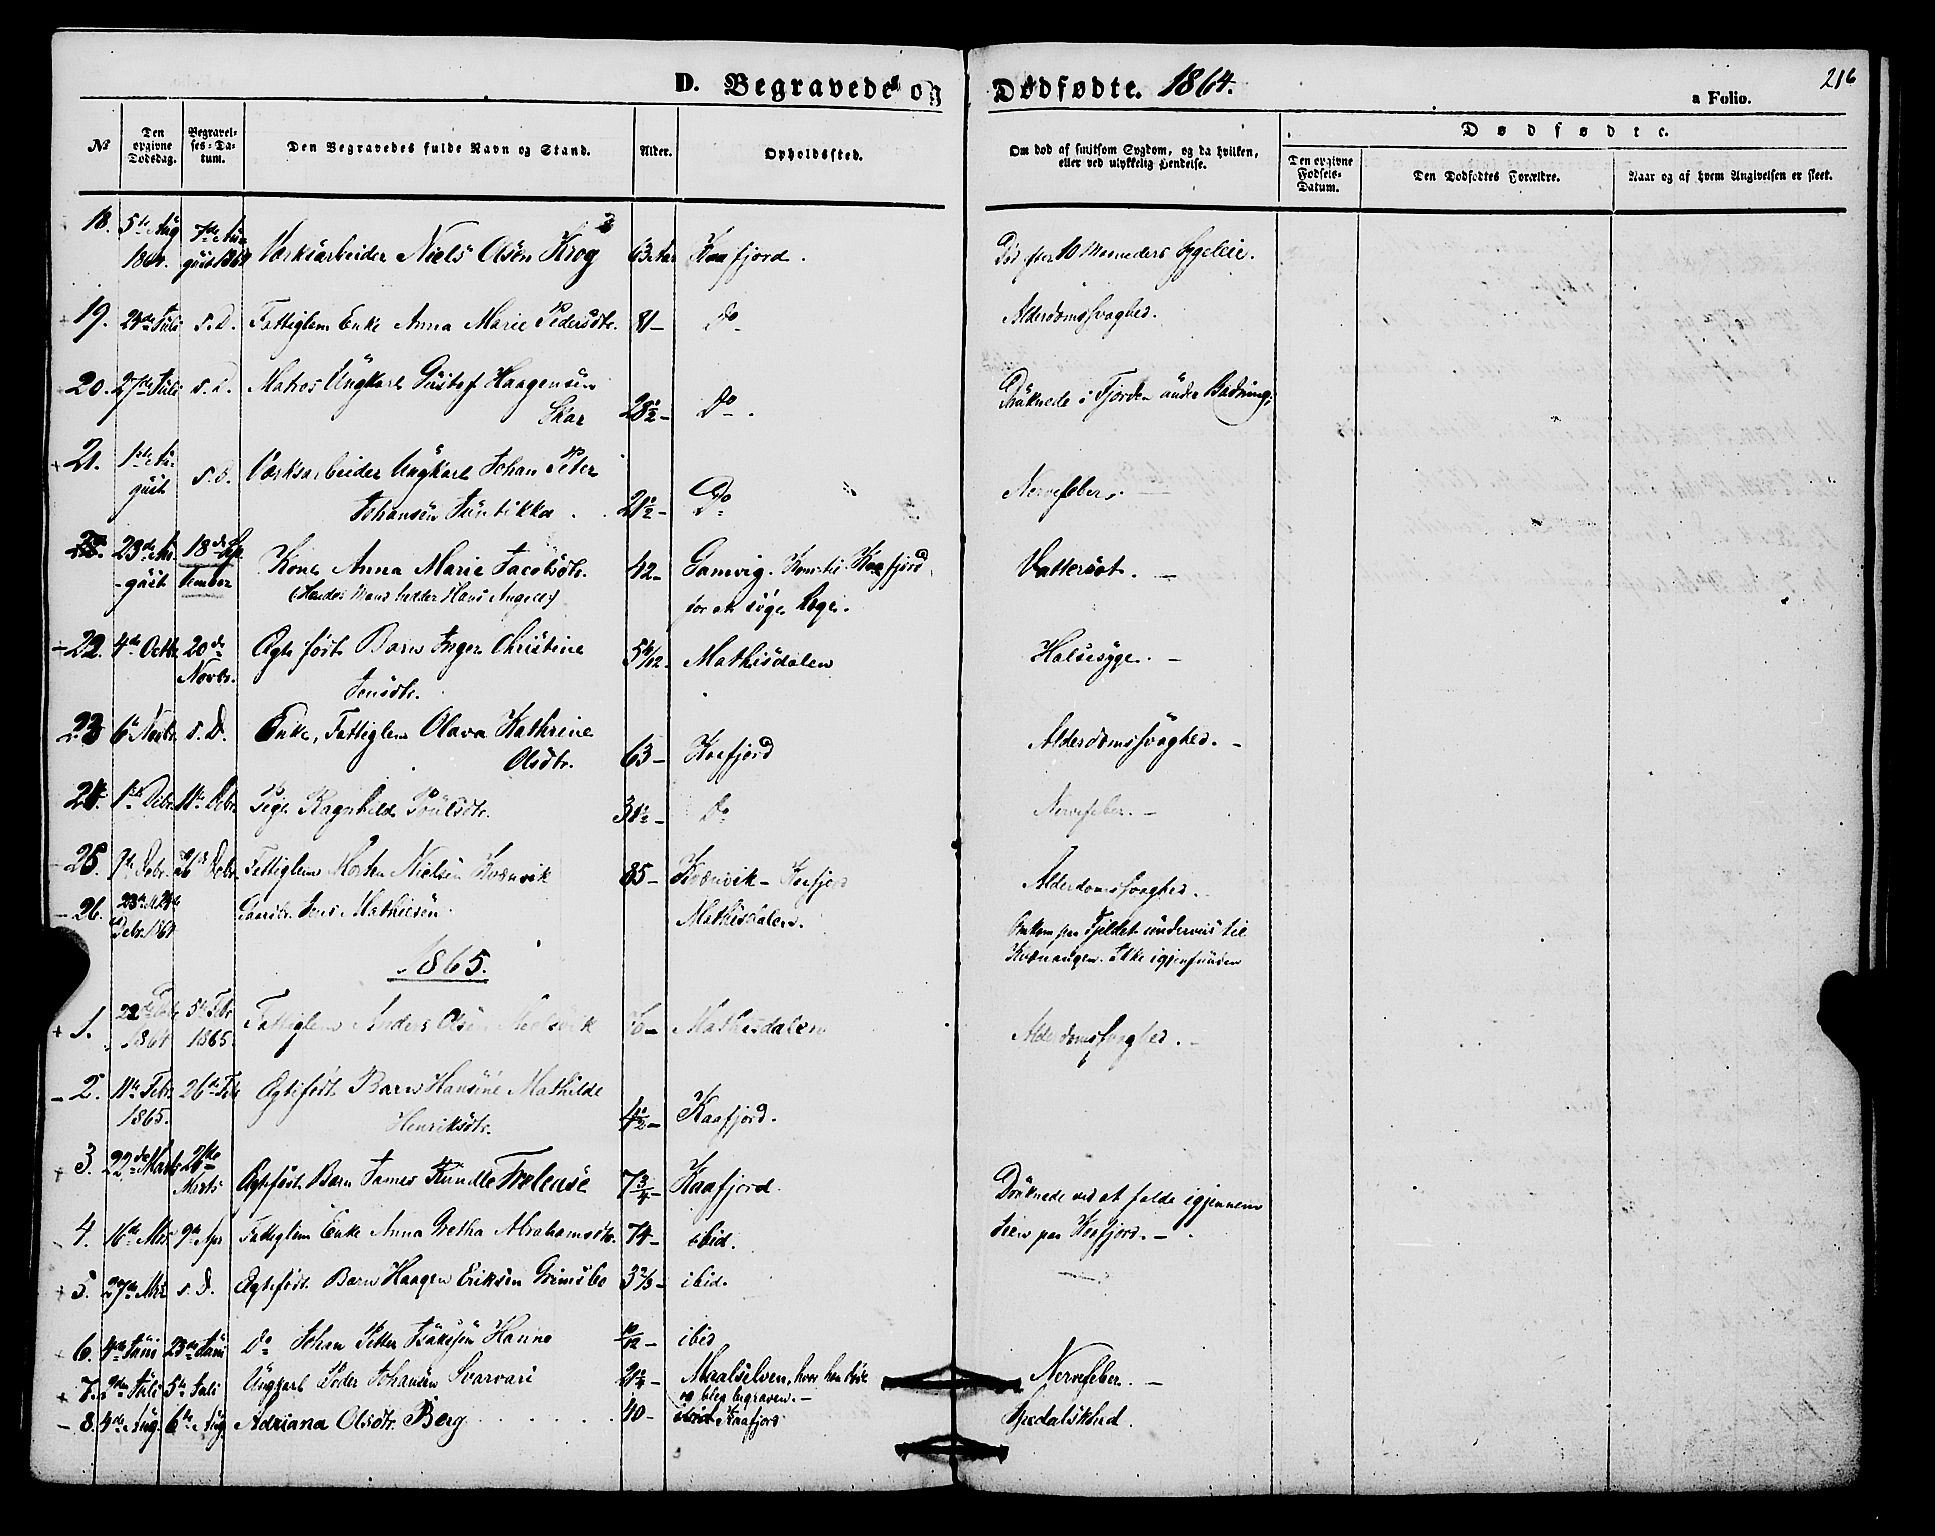 D. Begravede og Dødfødte. 1864.
216
a Folio.
№ Den opgivne Dødsdag. Begravelses-Datum. Den Begravedes fulde Navn og Stand. Alder. Opholdssted. Om død af smitsom Sygdom, og da hvilken, eller ved ulykkelig Hendelse.
Dødfødte.
Den opgivne Fødsels-Datum. Den Dødfødtes Forældre. Naar og af hvem Angivelsen er skeet.
18. 5te Aug 1864. 7de August 1864 Værksarbeider Niels Olsen Krog 63 Aar Kaafjord. Død efter 10 Maaneders Sygeleie.
19. 24de Juli s. D. Fattiglem Enke Anna Marie Pedersdtr. 81 – Do Alderdomssvaghed.
20. 27de Juli s. D. Matros Ungkarl Gustaf Haagensen
Skar 28½ – Do. Druknede i Fjorden under Badning.
21. 1ste August s. D. Værksarbeider Ungkarl Johan Peter
Johansen Juntikka. 21½ – Do Nervefeber.
23de August 18de September Kone Anna Marie Jacobsdtr. 42 – Gamvig. Kom til Kaafjord Vattersot. –
(Hendes Mand hedder Hans Angel) for at søge Læge.
22. 4de Octbr. 20de Novbr. Ægtefødt Barn Inger Christine
Jensdtr. 5 4/12 – Mathisdalen Halssyge. –
23 6te Novbr. s. D. Enke, Fattiglem Olava Kathrine
Olsdtr. 63 – Kaafjord Alderdomssvaghed. –
24. 1ste Debr. 11te Debr. Pige Ragnhild Poulsdtr. 31½ – Do Nervefeber. –
25. 7de Debr. Debr. Fattiglem Morten Nielsen Kvænvik 85 – Kvænvik – Kaafjord Alderdomssvaghed.
26. Debr. 1864 Gaardbr. Jens Mathiesen. Mathisdalen. Omkom paa Fjeldet underveis til
Kvænangen. Ikke igjenfunden
1865.
1. 22de 1864 5te Febr 1865. Fattiglem Anders Olsen Mathisdalen Alderdomssvaghed. –
2. 11te Febr. 1865. 26de Feb Ægtefødt Barn Hansine Mathilde
Henriksdtr. 4½ – Kaafjord.
3. 22de Marts Marts Ægtefødt Barn James Rundle Trelease 7¾ – Kaafjord. Druknede ved at falde igjennem
Isen paa Kaafjord. –
4. 16de Mts. 9de Apr Fattiglem Enke Anna Gretha Abrahamsdtr. 74 – ibid.
5. 27de Mts s. D. Ægtefødt Barn Haagen Eriksen Grimsbo 3⅔ – ibid.
6. 4de Juni 23de Juni Do Johan Petter Isaksen Hanno 10/12 – ibid
7. 2den Juli 5te Juli Ungkarl Peder Johansen Svarvari 21¼ – Maalselven, hvor han døde Nervefeber. –
og blev begraven. –
8. 4de Aug. 6te Aug. Adriana Olsdtr. Berg 40 – ibid Kaafjord Spedalskhed.